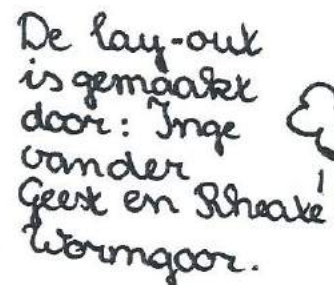 De lay-out
is gemaakt
door: Inge
vander
Geest en Rheaké
Wormgoor.